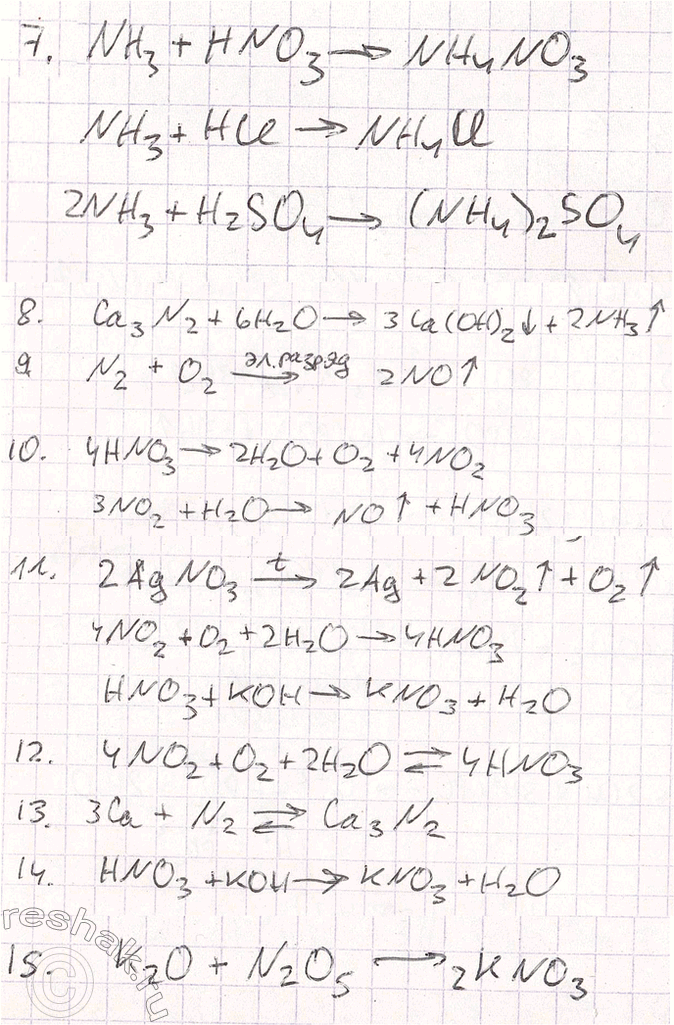 7. NH₃ + HNO₃ → NH₄NO₃
NH₃ + HCl → NH₄Cl
2NH₃ + H₂SO₄ → (NH₄)₂SO₄
8. Ca₃N₂ + 6H₂O → 3Ca(OH)₂↓ + 2NH₃↑
9 N₂ + O₂ эл.разряд → 2NO↑
10. 4HNO₃ → 2H₂O + O₂ + 4NO₂
3NO₂ + H₂O → NO↑ + HNO₃
11. 2AgNO₃ t→ 2Ag + 2NO₂↑ + O₂↑
4NO₂ + O₂ + 2H₂O → 4HNO₃
HNO₃ + KOH → KNO₃ + H₂O
12. 4NO₂ + O₂ + 2H₂O ⇄ 4HNO₃
13. 3Ca + N₂ ⇄ Ca₃N₂
14. HNO₃ + KOH → KNO₃ + H₂O
15. K₂O + N₂O₅ → 2KNO₃
reshak.ru
©